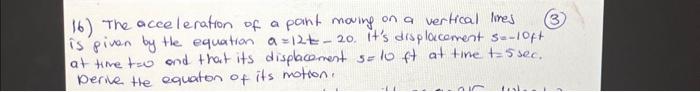 16) The acceleration of a point moving on a vertical lines ③
is given by the equation a=12t-20. It's displacement s=-10ft
at time t=0 and that its displacement s=10 ft at time t=5 sec.
Derive the equation of its motion.